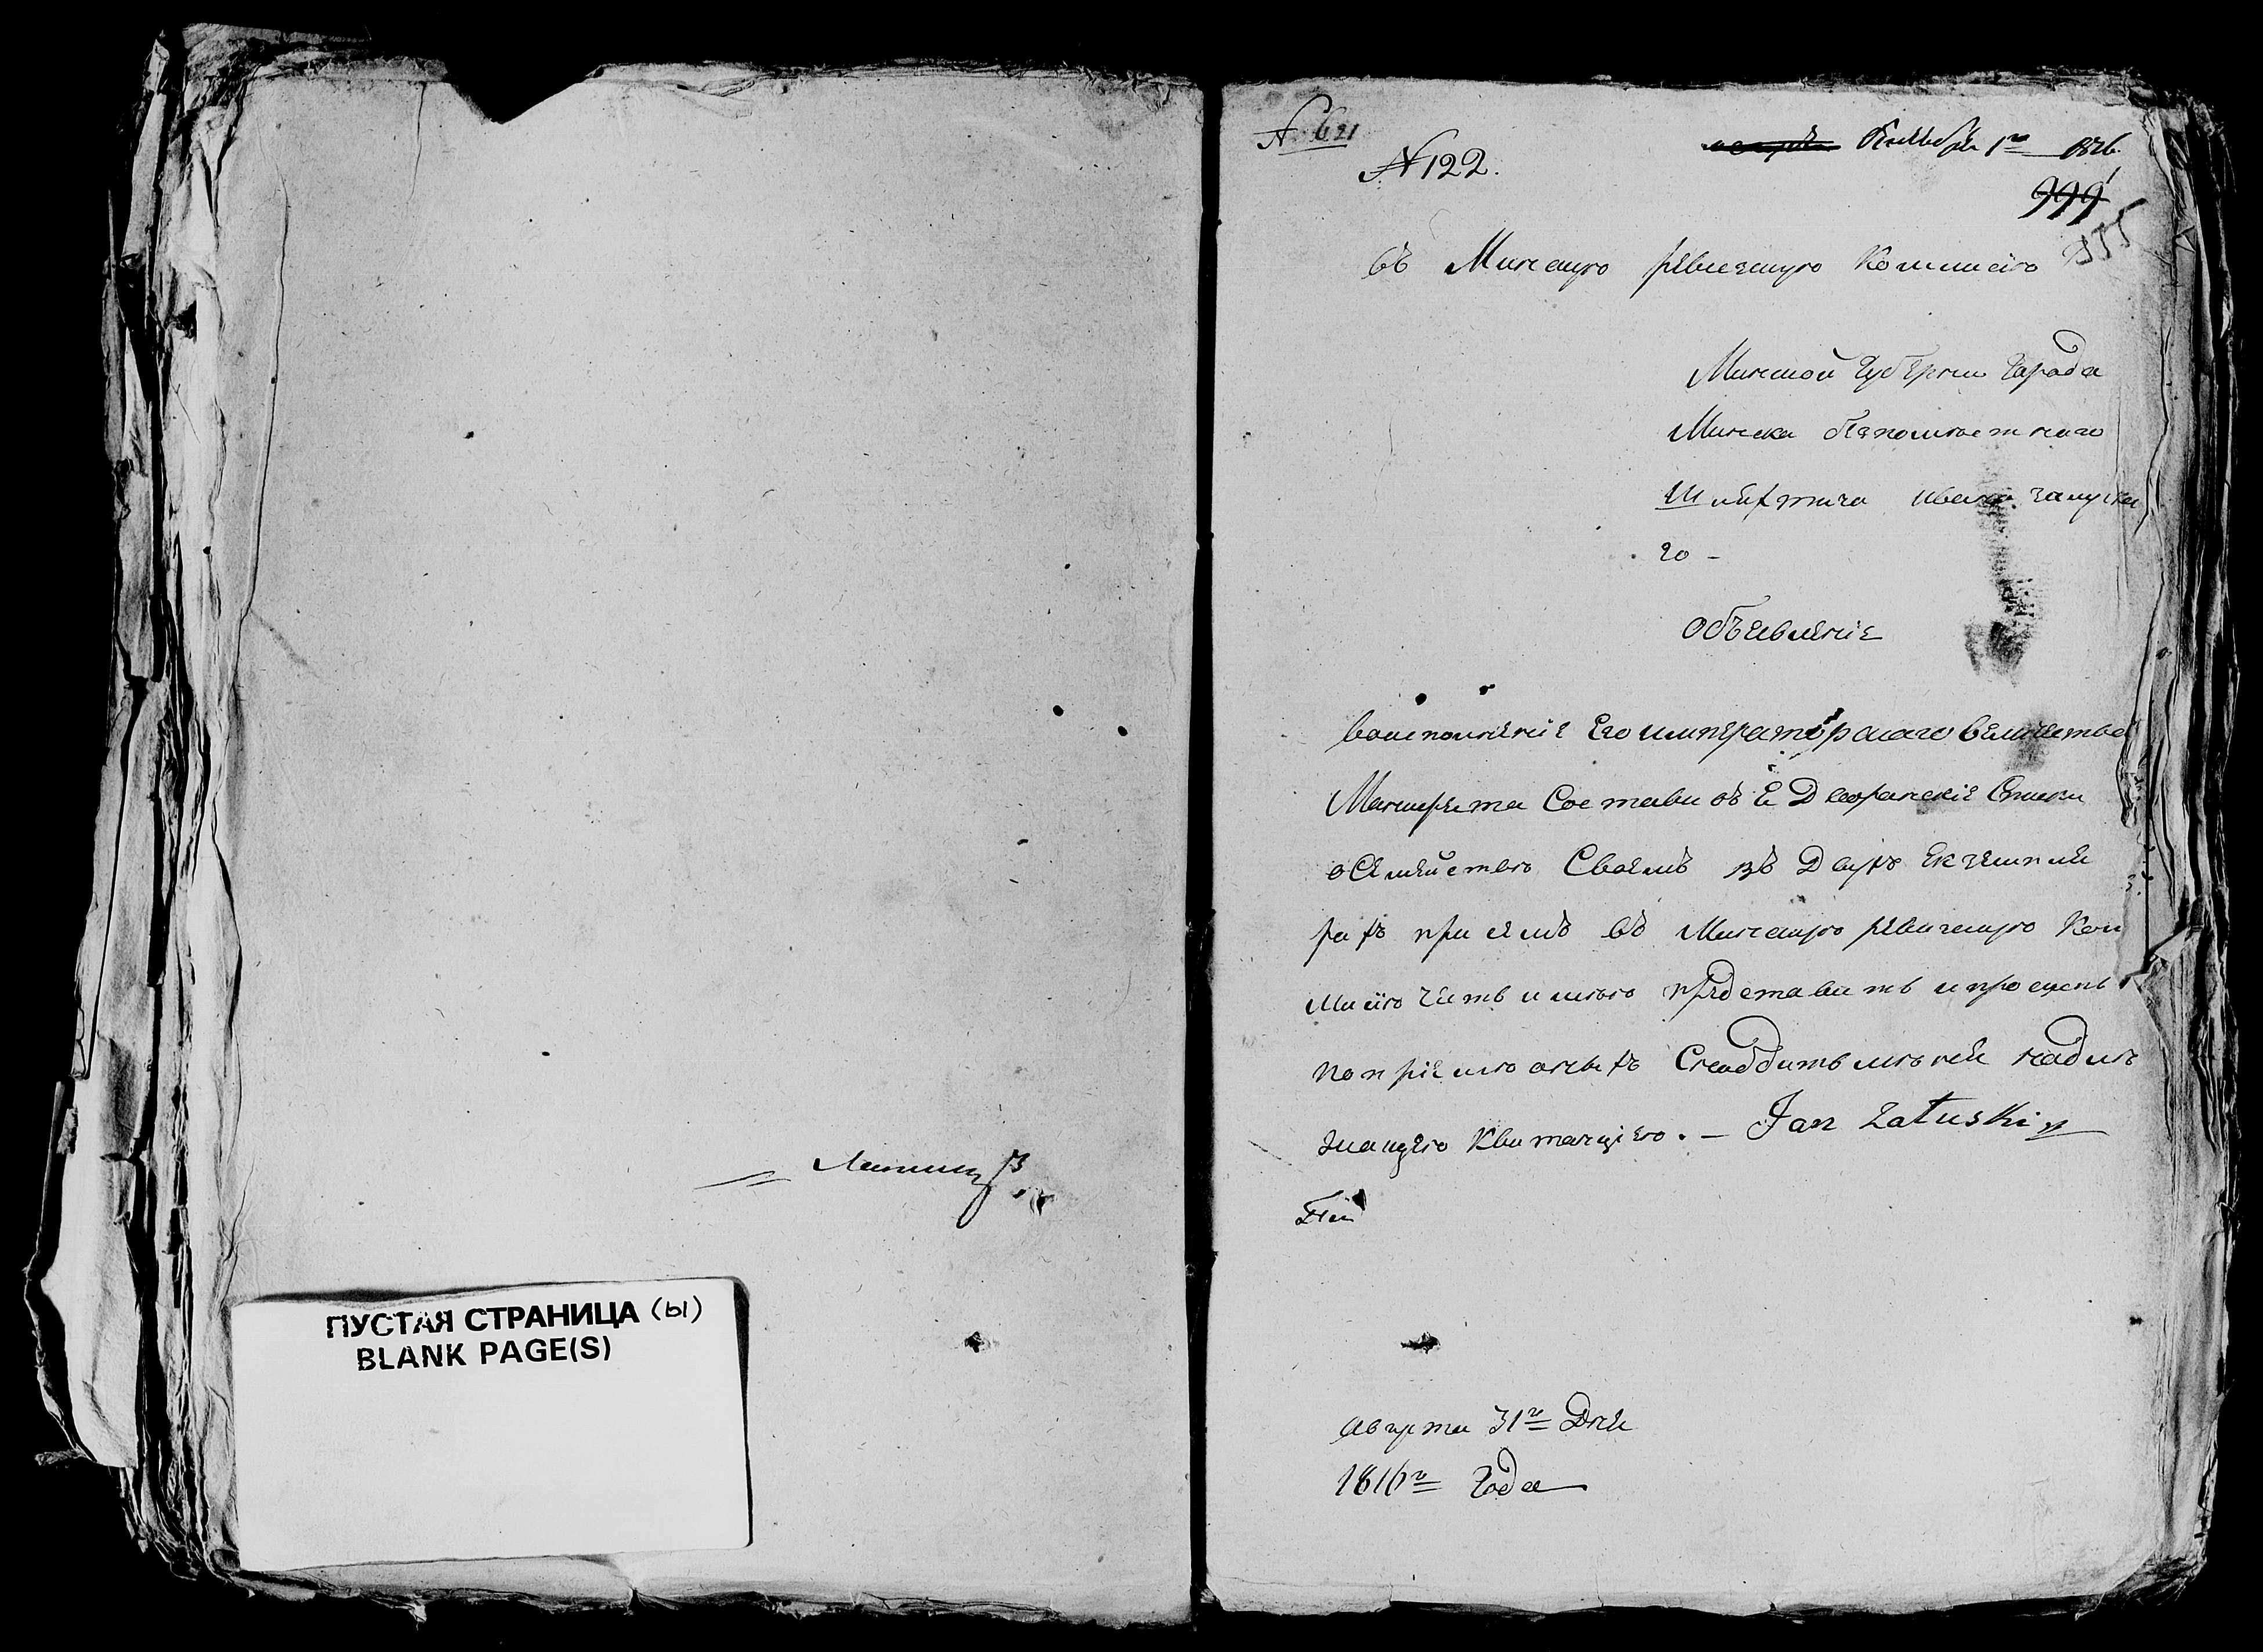 ПУСТАЯ СТРАНИЦА (ы)
BLANK PAGE(S)
№ 621
№ 122.
1го 1816
999
въ Минскую ревизскую Коммисію
Минской Губерніи Города
Минска безпоместнаго
Шляхтича ивана залуска
го –
Объевленіе
воисполненіе Его императорскаго величества
Манифеста Составивъ Я Дворянскіе Списки
о Семействе Своемъ въ Двухъ екземпля
рахъ при семъ въ Минскую ревизскую Ком
мисію честь имею представить и просить
по пріеме оныхъ Снабдить мене надле
жащею Квитанціею. – Jan Załuski
августа 31го Дня
1816го Года